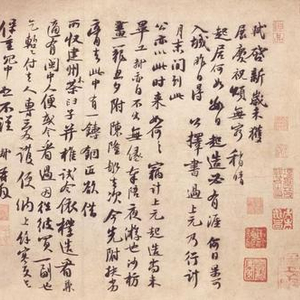 軾啓新歲未獲
展慶祝頌無窮稍晴
起居何如數日起造必有涯何日果可
入城昨日得公擇書過上元乃行計
月末間到此
公亦以此時來如何竊計上元起造尚未
畢工軾亦自不出無緣奉陪夜遊也沙枋
畫籠旦夕附陳隆船去次今先附扶劣
膏去此中有一鑄銅匠欲借
所收建州木茶臼子并椎試令依樣造看兼
適有閩中人便或令看過因往彼買一副也
乞暫付去人專愛護便納上餘寒更乞
保重冗中恕不謹軾再拜